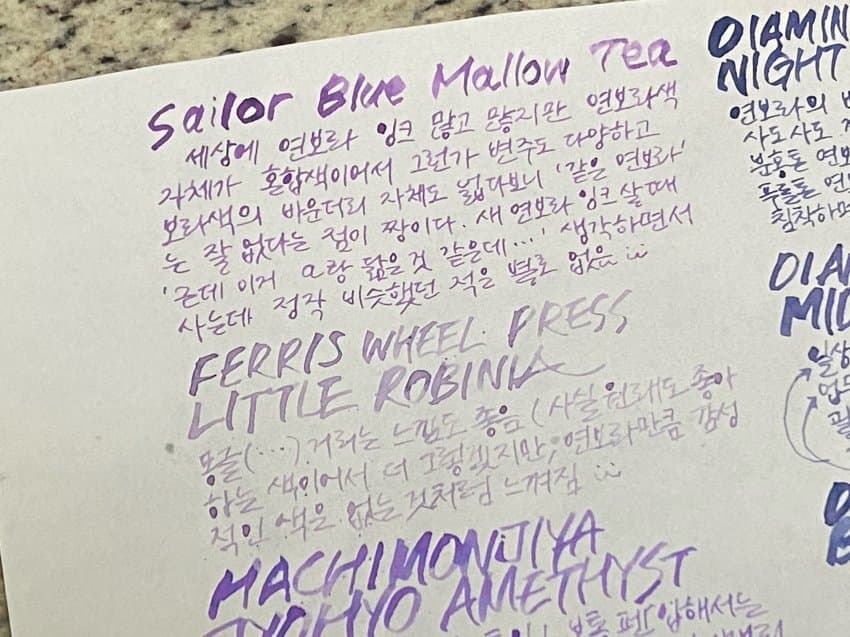 Sailor Blue Mallow Tea
세상에 연보라 잉크 많고 많지만 연보라색
자체가 혼합색이어서 그런가 변주도 다양하고
보라색의 바운더리 자체도 넓다보니 '같은 연보라'
는 잘 없다는 점이 짱이다. 새 연보라 잉크 살 때
'근데 이거 a랑 닮은것 같은데...' 생각하면서
사는데 정작 비슷했던 적은 별로 없음
FERRIS WHEEL PRESS
LITTLE ROBINIA
몽글(...)거리는 느낌도 좋음 (사실 원래도 좋아
하는 색이어서 더 그렇겠지만, 연보라만큼 감성
적인 색은 없는 것처럼 느껴짐
HACHIMONJIYA
AMETHYST
보통 펜 압해서는
DIAMIN
NIGHT
연보라의
사도사도
분홍톤 연보
푸른톤 연
침착하며
DIA
MID
일상